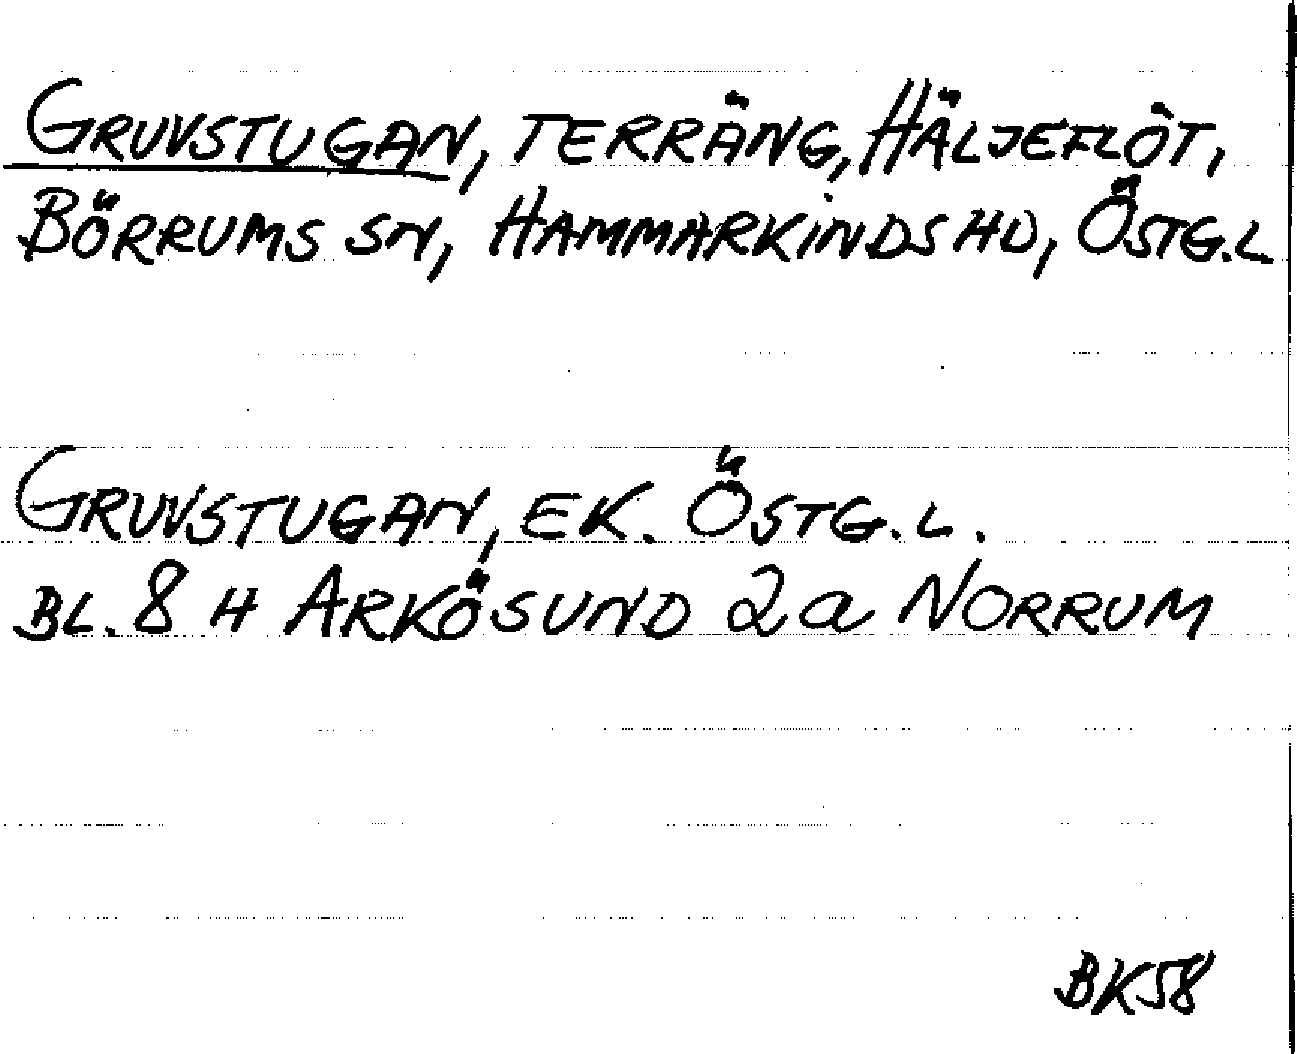 GRUVSTUGAN, TERRÄNG, HÄLJEFLÖT,
BÖRRUMS SN, HAMMARKINDS HD, ÖSTG.L
GRUVSTUGAN, EK. ÖSTG.L.
BL. 8 H ARKÖSUND 2a NORRUM
BK58